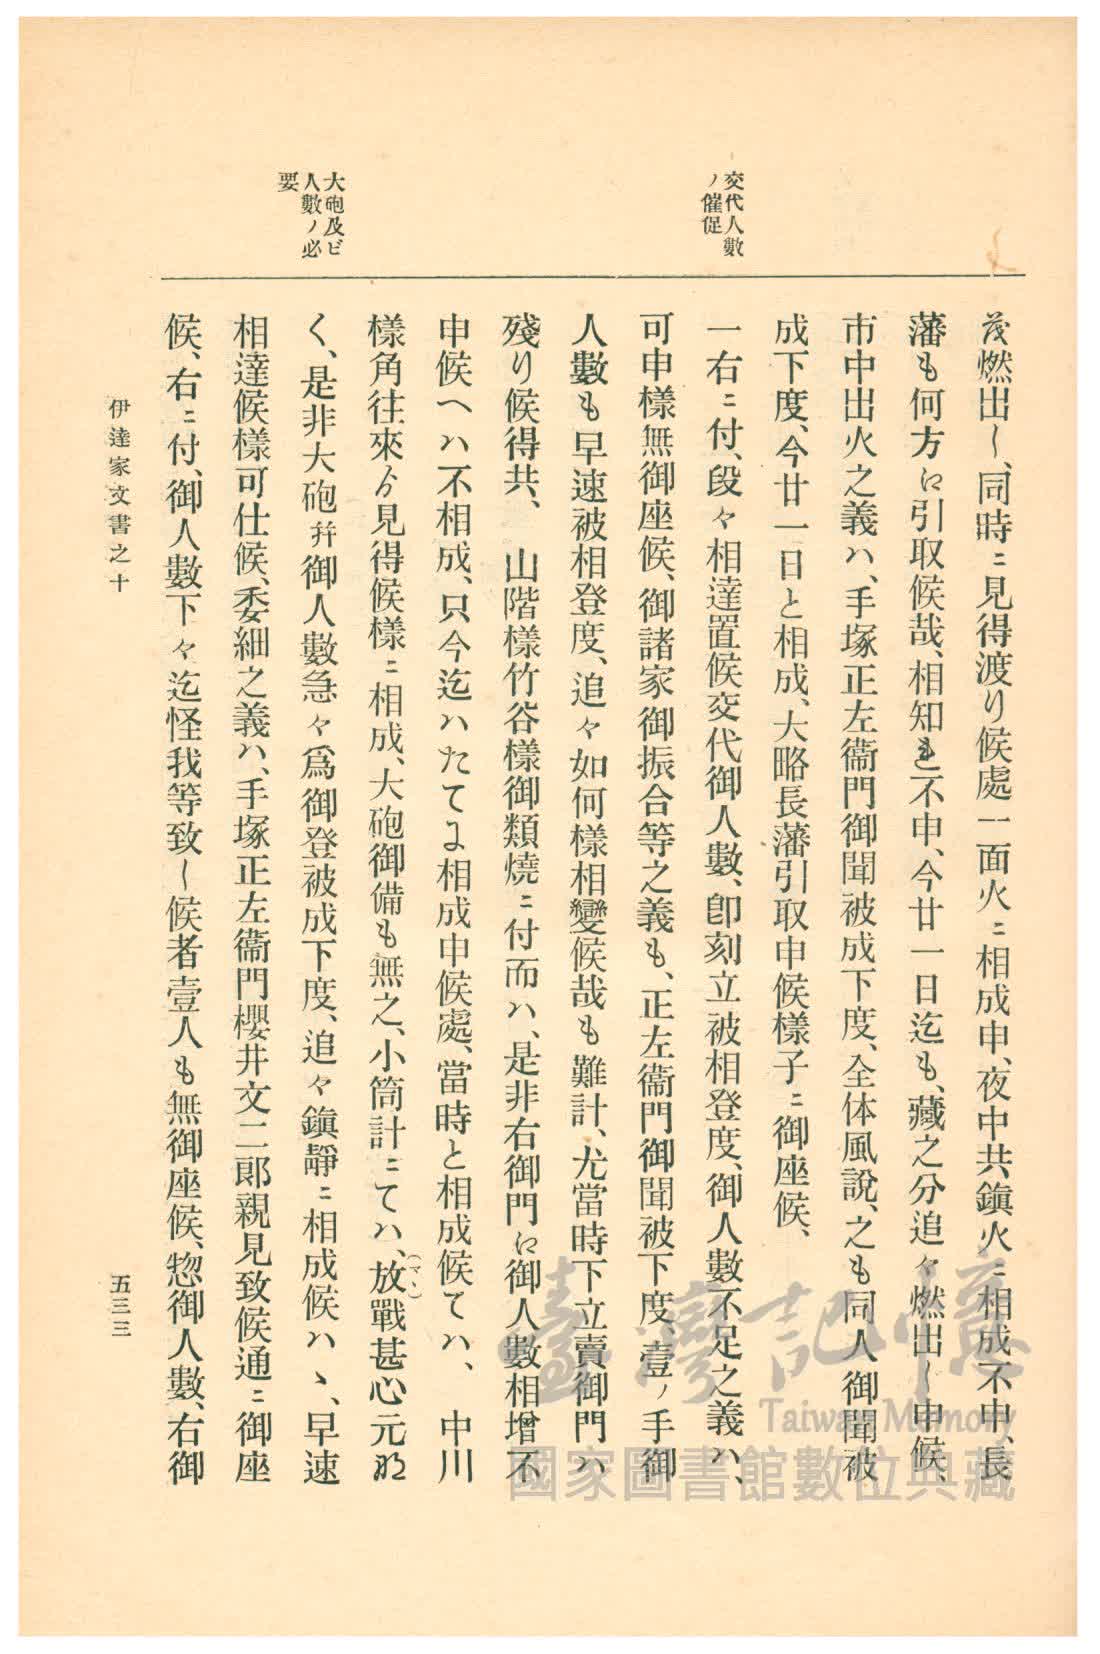 交代人數
ノ催促
大砲及ビ
人數ノ必
要
燃出し、同時ニ見得渡り候處一面火ニ相成申、夜中共鎭火ニ相成不申、長
藩も何方江引取候哉、相知も不申、今廿一日迄も、藏之分追々燃出し申候、
市中出火之義ハ、手塚正左衞門御聞被成下度、全体風說、之も同人御聞被
成下度、今廿一日と相成、大略長藩引取申候樣子ニ御座候、
一右ニ付、段々相達置候交代御人數、卽刻立被相登度、御人數不足之義ハ、
可申樣無御座候、御諸家御振合等之義も、正左衞門御聞被下度、壹ノ手御
人數も早速被相登度、追々如何樣相變候哉も難計、尤當時下立賣御門ハ
殘り候得共、山階樣竹谷樣御類燒ニ付而ハ、是非右御門江御人數相增不
申候ヘハ不相成、只今迄ハたてよ相成申候處、當時と相成候てハ、中川
樣角往來ゟ見得候樣ニ相成、大砲御備も無之、小筒計ニてハ、放戰甚心元な
(マヽ)
く、是非大砲幷御人數急々爲御登被成下度、追々鎭靜ニ相成候ハヽ、早速
相達候樣可仕候、委細之義ハ、手塚正左衞門櫻井文二郞親見致候通ニ御座
候、右ニ付、御人數下々迄怪我等致し候者壹人も無御座候、惣御人數、右御
伊達家文書之十
五三三
臺灣記憶
Taiwan Memory
國家圖書館數位典藏